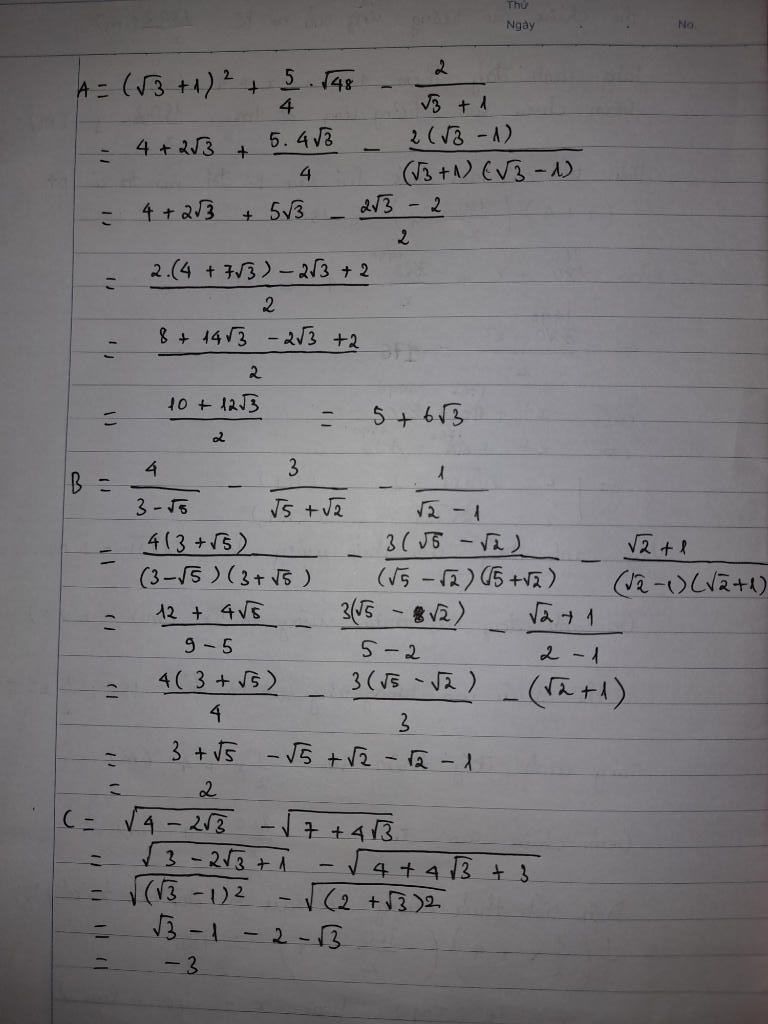 Thứ
Ngày . . No.
A = (√3 + 1)² + 5/4 · √48 - 2/(√3 + 1)
= 4 + 2√3 + (5.4√3)/4 - (2(√3 - 1))/((√3+1)(√3 - 1))
= 4 + 2√3 + 5√3 - (2√3 - 2)/2
= (2.(4 + 7√3) - 2√3 + 2)/2
= (8 + 14√3 - 2√3 + 2)/2
= (10 + 12√3)/2 = 5 + 6√3
B = 4/(3 - √5) - 3/(√5 + √2) - 1/(√2 - 1)
= (4(3 + √5))/((3 - √5)(3 + √5)) - (3(√5 - √2))/((√5 - √2)(√5 + √2)) - (√2 + 1)/((√2 - 1)(√2 + 1))
= (12 + 4√5)/(9 - 5) - (3(√5 - √2))/(5 - 2) - (√2 + 1)/(2 - 1)
= (4(3 + √5))/4 - (3(√5 - √2))/3 - (√2 + 1)
= 3 + √5 - √5 + √2 - √2 - 1
= 2
C = √(4 - 2√3) - √(7 + 4√3)
= √(3 - 2√3 + 1) - √(4 + 4√3 + 3)
= √((√3 - 1)²) - √((2 + √3)2)
= √3 - 1 - 2 - √3
= -3